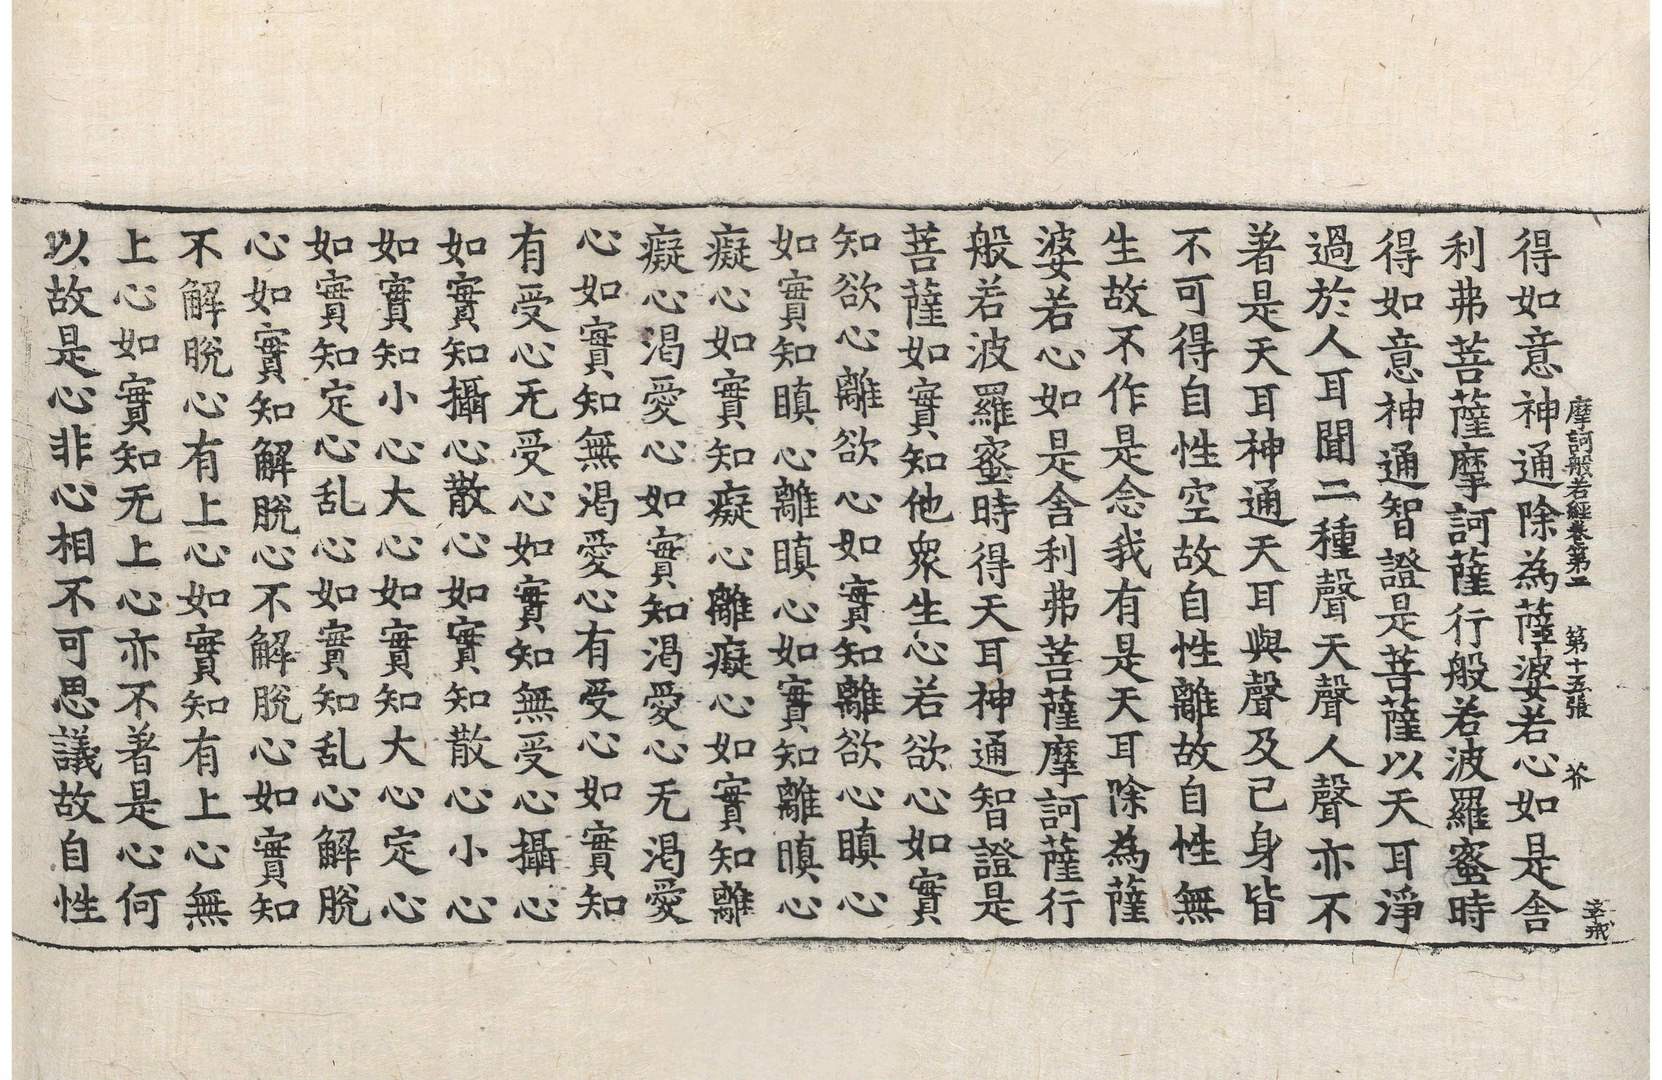 摩訶般若經卷第二 第十五張 芥
得如意神通除為薩婆若心如是舍
利弗菩薩摩訶薩行般若波羅蜜時
得如意神通智證是菩薩以天耳淨
過於人耳聞二種聲天聲人聲亦不
著是天耳神通天耳與聲及己身皆
不可得自性空故自性離故自性無
生故不作是念我有是天耳除為薩
婆若心如是舍利弗菩薩摩訶薩行
般若波羅蜜時得天耳神通智證是
菩薩如實知他衆生心若欲心如實
知欲心離欲心如實知離欲心瞋心
如實知瞋心離瞋心如實知離瞋心
癡心如實知癡心離癡心如實知離
癡心渴愛心如實知渴愛心无渴愛
心如實知無渴愛心有受心如實知
有受心无受心如實知無受心攝心
如實知攝心散心如實知散心小心
如實知小心大心如實知大心定心
如實知定心乱心如實知乱心解脫
心如實知解脫心不解脫心如實知
不解脫心有上心如實知有上心無
上心如實知无上心亦不著是心何
以故是心非心相不可思議故自性